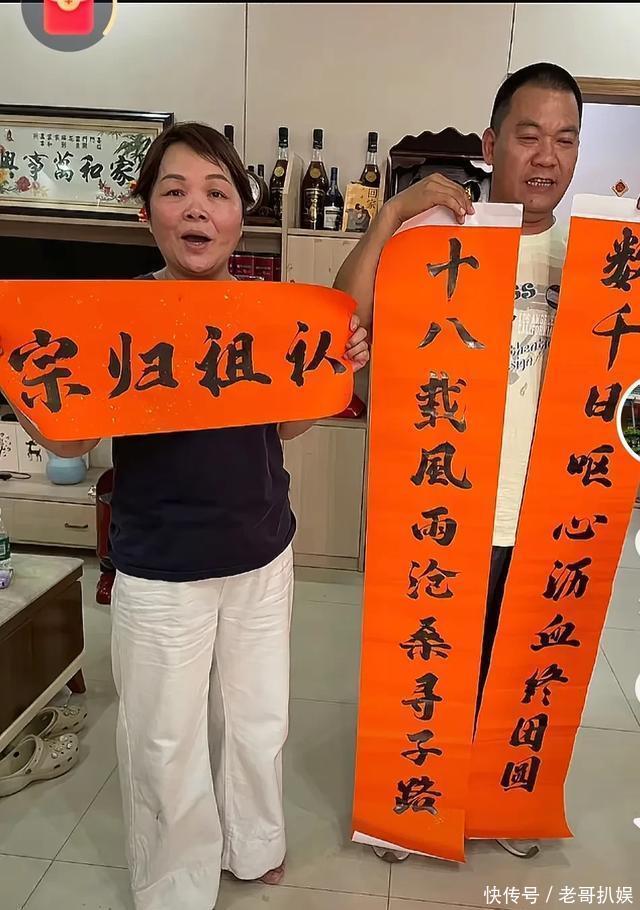 家和萬事興
认祖归宗
十八载風雨沧桑寻子路
数千日呕心沥血终团圆
快传号 / 老哥扒娱